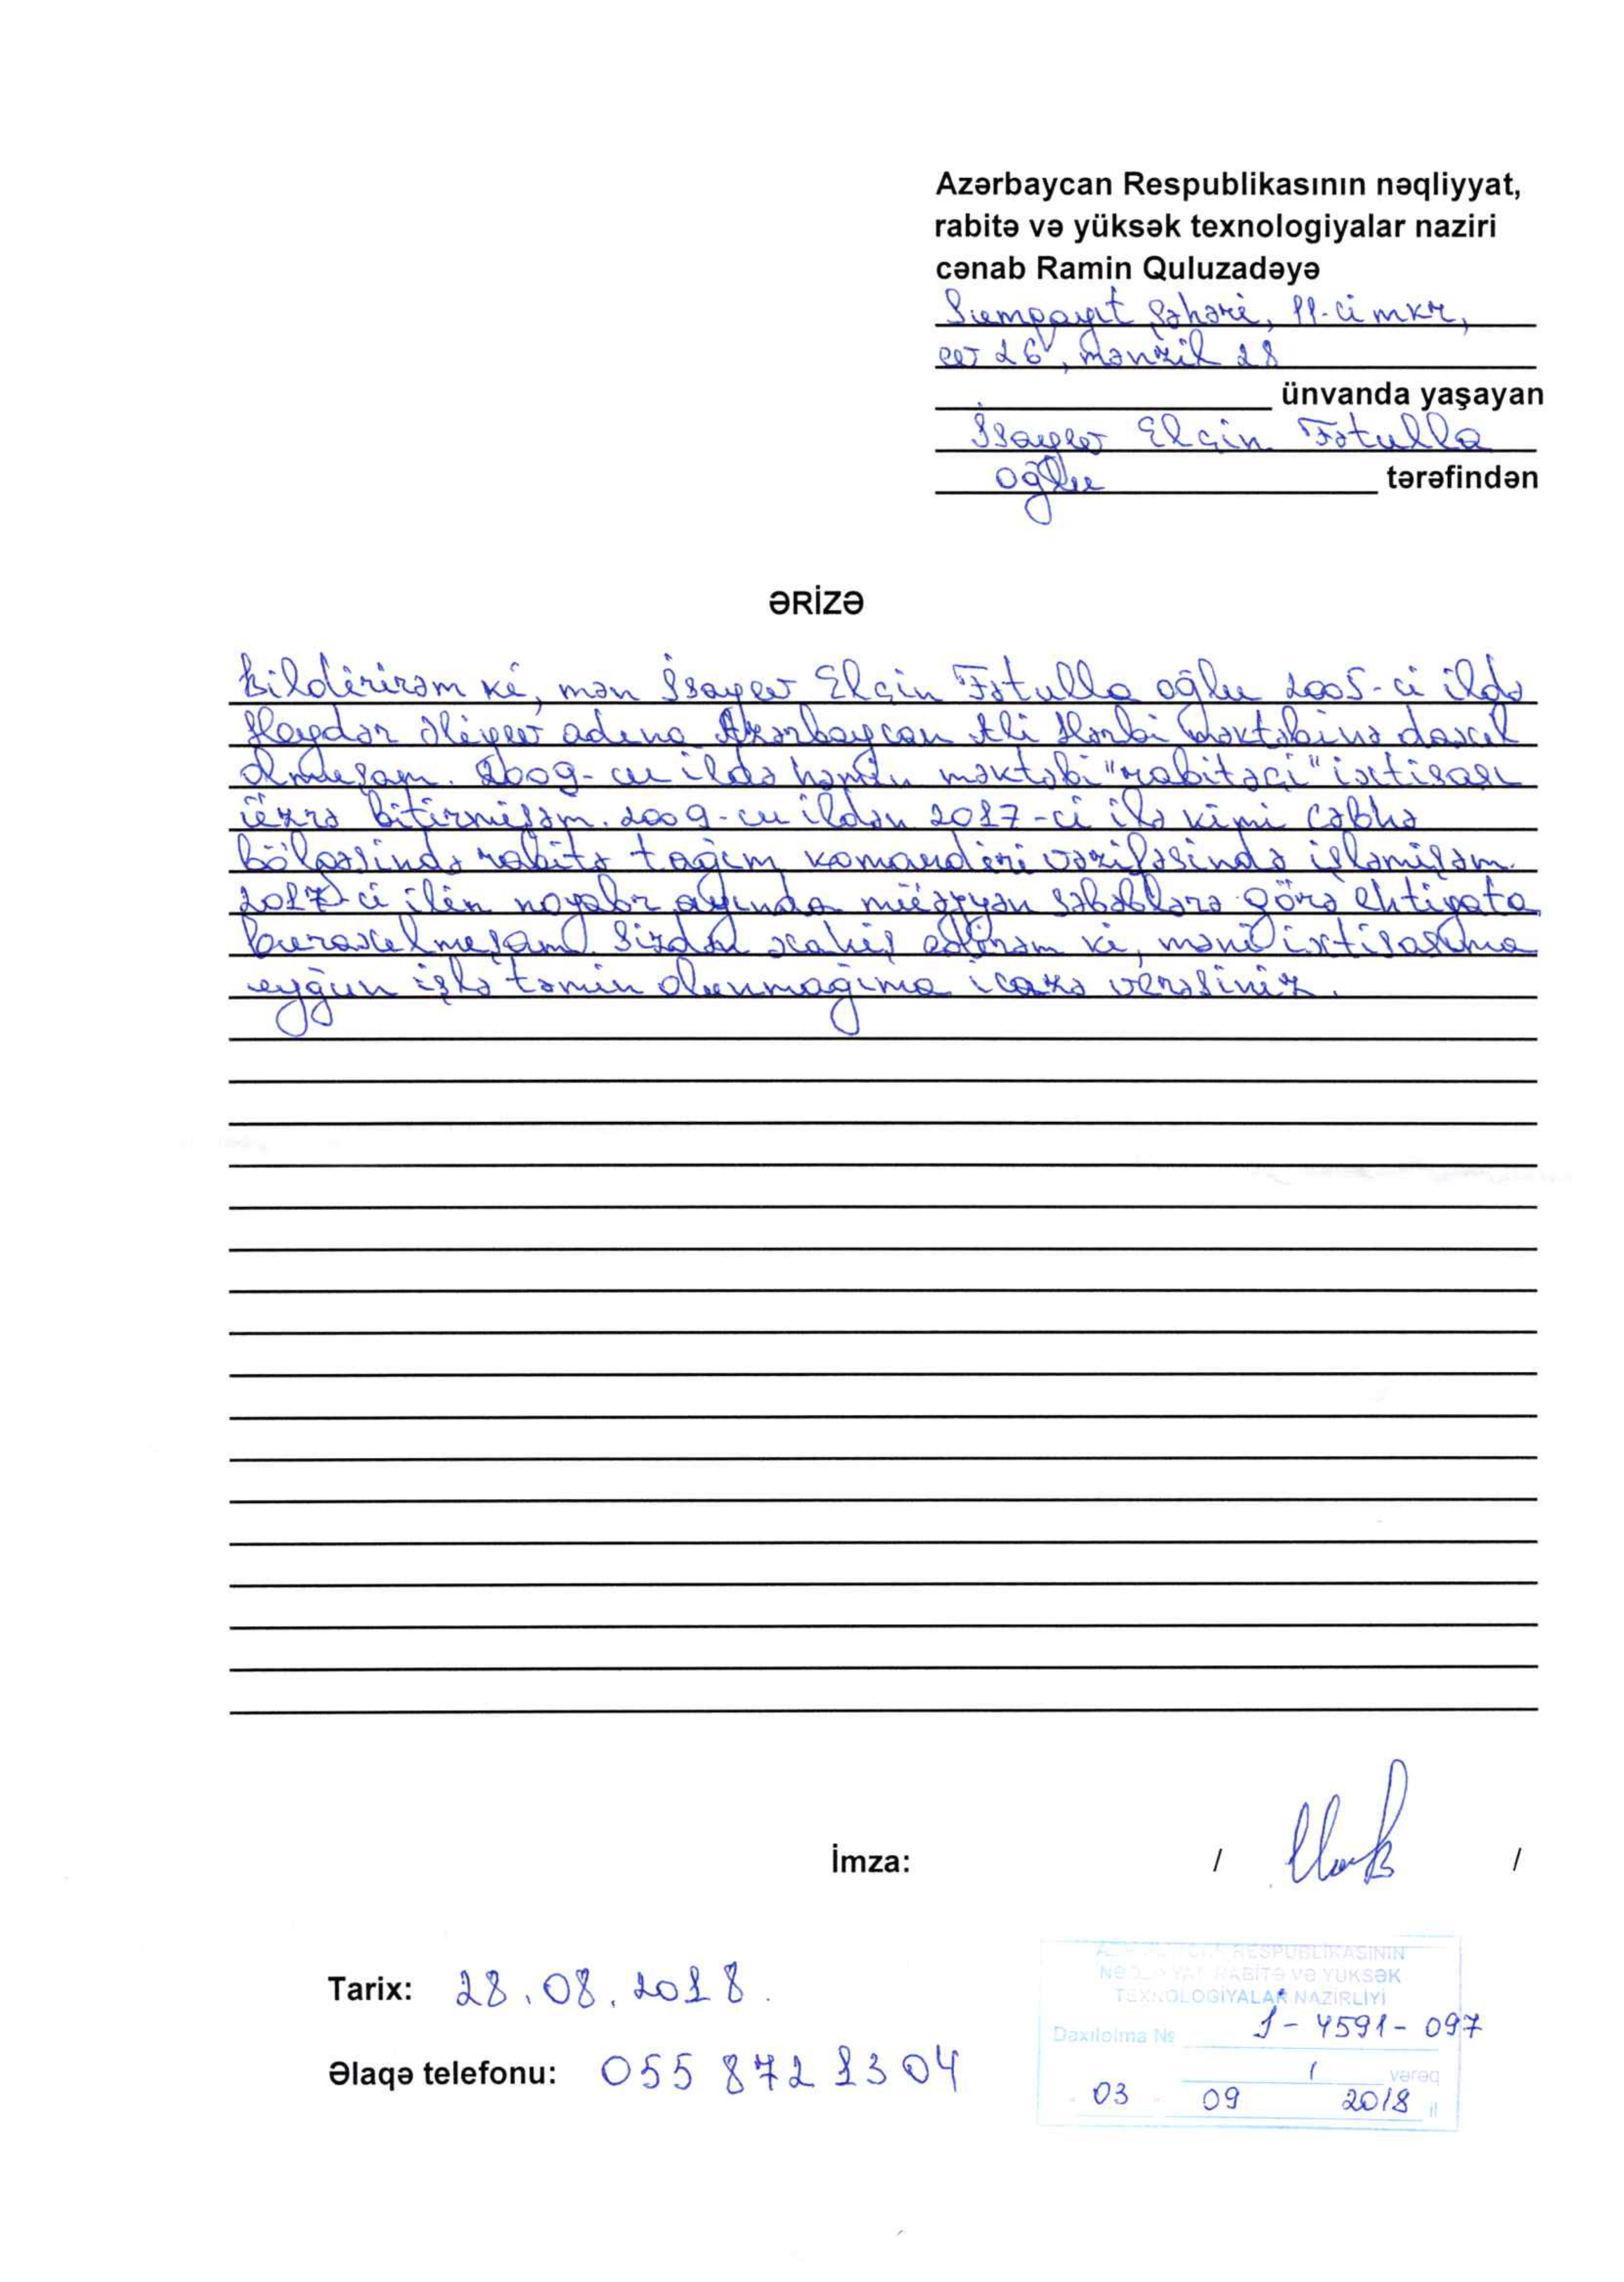 Azərbaycan Respublikasının nəqliyyat,
rabitə və yüksək texnologiyalar naziri
cənab Ramin Quluzadəyə
Sumqayıt şəhəri, 11-ci mkr,
ev 26, mənzil 28
ünvanda yaşayan
İsayev Elçin Fətulla
oğlu tərəfindən
ƏRİZƏ
Bildirirəm ki, mən İsayev Elçin Fətulla oğlu 2005-ci ildə
Heydər Əliyev adına Azərbaycan Ali Hərbi məktəbinə daxil
olmuşam. 2009-cu ildə həmin məktəbi "rabitəçi" ixtisası
üzrə bitirmişəm. 2009-cu ildən 2017-ci ilə kimi cəbhə
bölgəsində rabitə tağım komandiri vəzifəsində işləmişəm.
2017-ci ilin noyabr ayında müəyyən səbəblərə görə ehtiyata
buraxılmışam. Sizdən xahiş edirəm ki, məni ixtisasıma
uyğun işlə təmin olunmağıma icazə verəsiniz.
İmza: / /
Tarix: 28.08.2018.
AZƏRBAYCAN RESPUBLİKASININ
NƏQLİYYAT, RABİTƏ VƏ YÜKSƏK
TEXNOLOGİYALAR NAZİRLİYİ
Daxilolma № 1-4591-097
Əlaqə telefonu: 055 872 1304
1 vərəq
03 09 2018 il